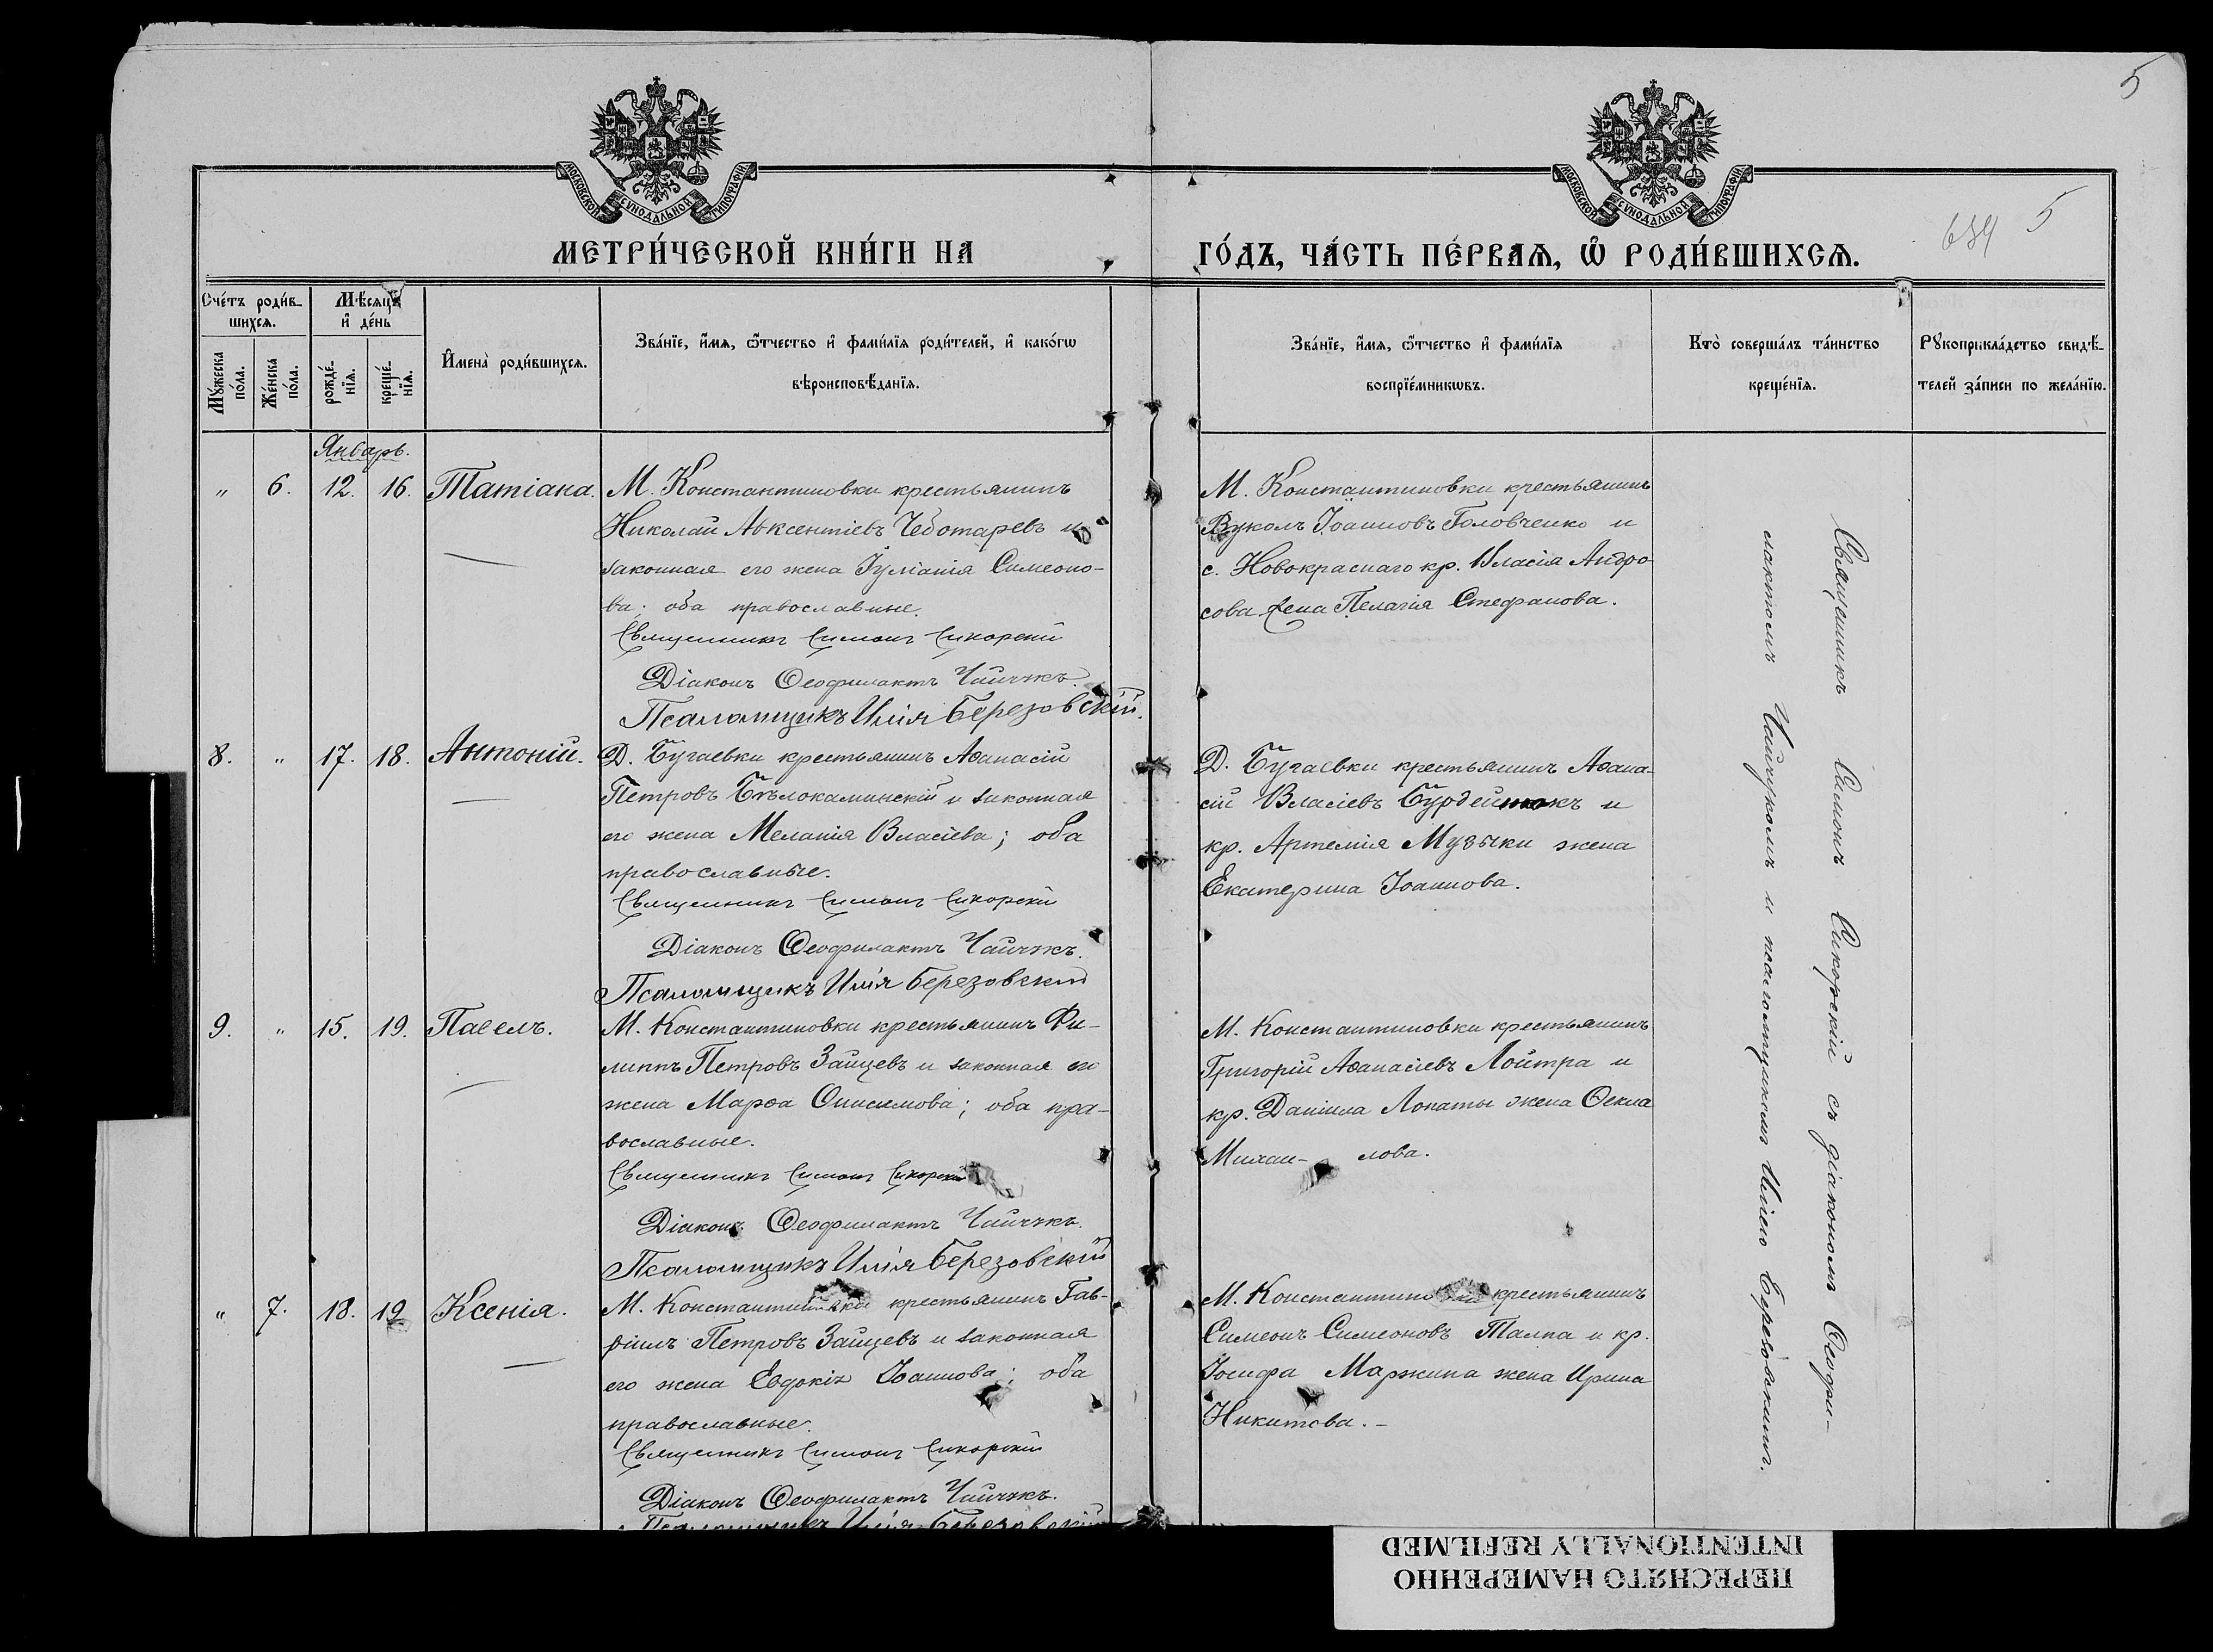 5
МОСКОВСКОЙ СѴНОДАЛЬНОЙ ТИПОГРАФІИ
МОСКОВСКОЙ СѴНОДАЛЬНОЙ ТИПОГРАФІИ
634 5
МЕТРИ́ЧЕСКОЙ КНИ́ГИ НА
ГО́ДЪ, ЧА́СТЬ ПЕ́РВАѦ, Ѽ РОДИ́ВШИХСѦ.
Сче́тъ роди́в-
шихсѧ.
Мѣ́сѧцъ
и҆ де́нь
Мꙋ́жеска
по́ла.
Же́нска
по́ла.
рожде́-
нїѧ.
креще́-
нїѧ.
И҆мена̀ роди́вшихсѧ.
Зва́нїе, и҆́мѧ, ѻ҆́тчество и҆ фами́лїѧ роди́телей, и҆ како́гѡ
вѣроисповѣ́данїѧ.
Зва́нїе, и҆́мѧ, ѻ҆́тчество и҆ фами́лїѧ
воспрїе́мникѡвъ.
Кто̀ соверша́лъ та́инство
креще́нїѧ.
Рꙋкоприкла́дство свидѣ́-
телей за́писи по жела́нїю.
Январь.
" 6. 12. 16. Татіана.
М. Константиновки крестьянинъ
Николай Авксентіевъ Чеботаревъ и
законная его жена Іуліанія Симеоно-
ва; оба православные.
Священникъ Симонъ Сикорскій
Діаконъ Ѳеофилактъ Чайчукъ.
Псаломщикъ Илія Березовскій.
М. Константиновки крестьянинъ
Вуколъ Іоанновъ Головченко и
с. Новокраснаго кр. Власія Андро-
сова жена Пелагія Стефанова.
8. " 17. 18. Антоній.
Д. Бугаевки крестьянинъ Аѳанасій
Петровъ Бѣлокаминскій и законная
его жена Меланія Власіева; оба
православные.
Священникъ Симонъ Сикорскій
Діаконъ Ѳеофилактъ Чайчукъ.
Псаломщикъ Илія Березовскій
Д. Бугаевки крестьянинъ Аѳана-
сій Власіевъ
и
кр. Артемія Музыки жена
Екатерина Іоаннова.
9. " 15. 19. Павелъ.
М. Константиновки крестьянинъ Фи-
липпъ Петровъ Зайцевъ и законная его
жена Марѳа Онисимова; оба пра-
вославные.
Священникъ Симонъ Сикорскій
Діаконъ Ѳеофилактъ Чайчукъ.
Псаломщикъ Илія Березовскій
М. Константиновки крестьянинъ
Григорій Аѳанасіевъ Лойтра и
кр. Даніила Лопаты жена Ѳекла
Михаи- лова.
" 7. 18. 19 Ксенія.
М. Константиновки крестьянинъ Гав-
ріилъ Петровъ Зайцевъ и законная
его жена Евдокія Іоаннова; оба
православные.
Священникъ Симонъ Сикорскій
Діаконъ Ѳеофилактъ Чайчукъ.
Псаломщикъ Илія Березовскій
М. Константиновки крестьянинъ
Симеонъ Симеоновъ Талпа и кр.
Іосифа Маржина жена Ирина
Никитова.-
Священникъ Симонъ Сикорскій съ діакономъ Ѳеофи-
лактомъ Чайчукомъ и псаломщикомъ Иліею Березовскимъ.
ПЕРЕСНЯТО НАМЕРЕННО
INTENTIONALLY REFILMED